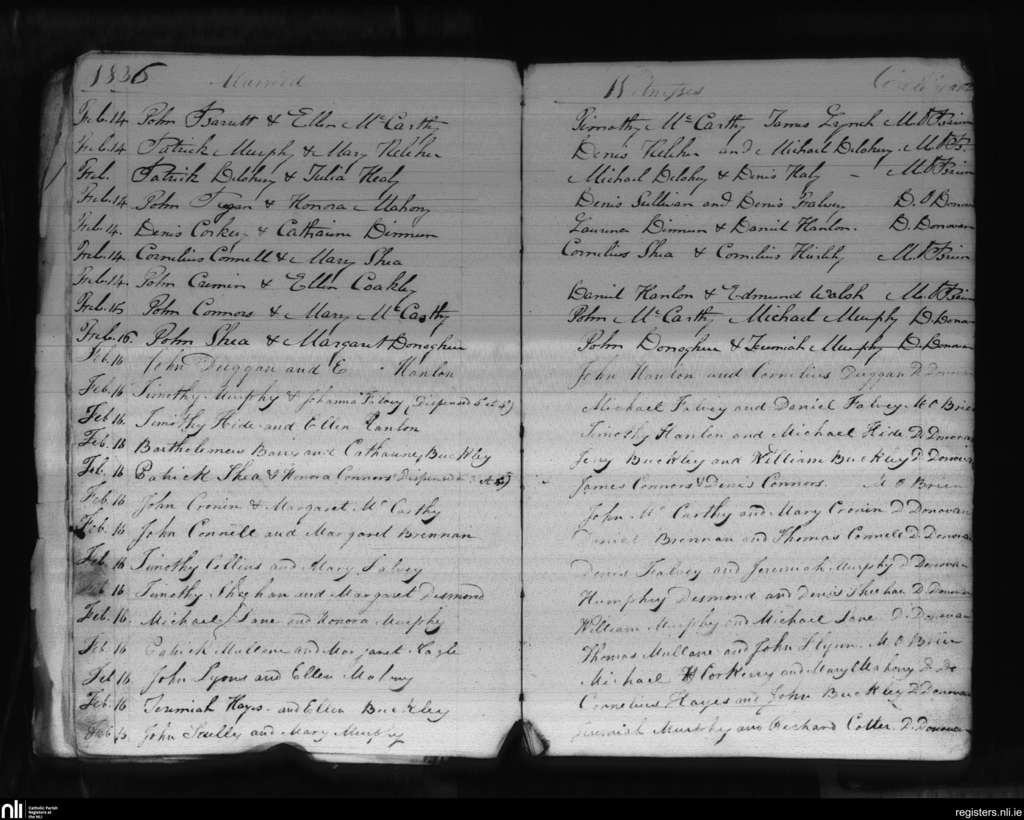 1836 Married Witnesses
Feb. 14. John Barrett & Ellen McCarthy Timothy McCarthy James Lynch M. O Brien
Feb. 14 Patrick Murphy & Mary Keleher Denis Keleher and Michael Delohery M. O Br
Feb. Patrick Delohery & Julia Healy Michael Delohery & Denis Haly - M. O Brien
Feb. 14. John & Honora Mahony Denis Sullivan and Denis Falvey D. O Donovan
Feb. 14. Denis Corkery & Catharine Dinneen Laurence Dinneen & Daniel Hanlon. D. Donovan
Feb. 14. Cornelius Connell & Mary Shea Cornelius Shea & Cornelius M. O Brien
Feb. 14. John & Ellen Coakley Daniel Hanlon & Edmund Walsh M. O Brien
Feb. John Connors & Mary McCarthy John McCarthy Michael Murphy D. Dono
Feb. 16. John Shea & Margaret Donoghue John Donoghue & Jeremiah Murphy D. Donovan
Feb. 16 John Duggan and E Hanlon John Hanlon and Cornelius Duggan D. Donovan
Feb. 16 Timothy Murphy & Johanna Falvey (Dispensed Michael Falvey and Daniel Falvey M O Brie
Feb 16. Timothy Hide and Ellen Hanlon Timothy Hanlon and Michael Hide D. Donovan
Feb. 16 Bartholomew Barry and Catharine Buckley Jery Buckley and William Buckley D Donovan
Feb. 16 Patrick Shea & Honora Connors Dispensed James Connors & Denis Connors. M O Brien
Feb. 16 John Cronin & Margaret McCarthy John McCarthy and Mary Cronin D Donovan
Feb. 16 John Connell and Margaret Brennan Daniel Brennan and Thomas Connell D. Donovan
Feb 16 Timothy Collins and Mary Falvey Denis Falvey and Jeremiah Murphy D Donovan
Feb. 16 Timothy Sheehan and Margaret Desmond Humphrey Desmond and Denis Sheehan D. Donovan
Feb. 16. Michael Lane and Honora Murphy William Murphy and Michael Lane D. Donovan
Feb. 16 Patrick Mullane and Margaret Nagle Thomas Mullane and John Flynn. M. O Brien
Feb 16. John Lyons and Ellen Michael Corkery and Mary Mahony D. Do
Feb. 16 Jeremiah Hayes and Ellen Buckley Cornelius Hayes and John Buckley D. Donovan
Feb John Scully and Mary Murphy Jeremiah Murphy and Richard Cotter. D. Donovan
nli Catholic Parish Registers at the NLI
registers.nli.ie